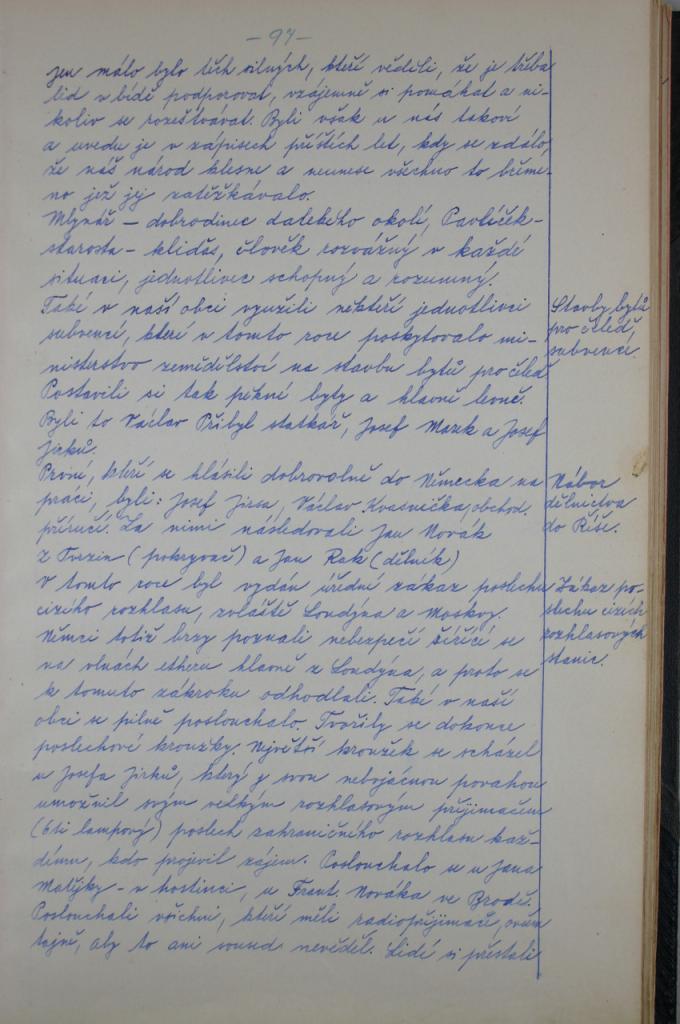 - 97 -
jen málo bylo těch silných, kteří věděli, že je třeba
lid v bídě podporovat, vzájemně si pomáhat a ni-
koliv se rozeštvávat. Byli však u nás takoví
a uvedu je v zápisech příštích let, kdy se zdálo,
že náš národ klesne a neunese všechno to břeme-
no jež jej zatěžkávalo.
Mlynář - dobrodinec dalekého okolí, Pavlíček -
starosta - kliďas, člověk rozvážný v každé
situaci, jednotlivec schopný a rozumný.
Také v naší obci využili někteří jednotlivci
subvencí, které v tomto roce poskytovalo mi-
nisterstvo zemědělství na stavbu bytů pro čeleď
Postavili si tak pěkné byty a hlavně levně.
Byli to Václav Přibyl statkář, Josef Mazk a Josef
Jirků.
Stavby bytů
pro čeleď,
subvencí.
První, kteří se hlásili dobrovolně do Německa na
práci, byli: Josef Jirsa, Václav Kvasnička, obchod.
příručí. Za nimi následovali Jan Novák
z Tvrzin (pokryvač) a Jan Rak (dělník)
Nábor
dělnictva
do Říše.
V tomto roce byl vydán úřední zákaz poslechu
cizího rozhlasu, zvláště Londýna a Moskvy.
Němci totiž brzy poznali nebezpečí šířící se
na vlnách etheru hlavně z Londýna, a proto se
k tomuto zákroku odhodlali. Také v naší
obci se pilně poslouchalo. Tvořily se dokonce
poslechové kroužky. Největší kroužek se scházel
u Josefa Jirků, který svou nebojácnou povahou
umožnil svým velkým rozhlasovým přijímačem
(6ti lampový) poslech zahraničního rozhlasu kaž-
dému, kdo projevil zájem. Poslouchalo se u Jana
Matějky - v hostinci, u Frant. Nováka ve Brodě.
Poslouchali všichni, kteří měli radiopřijimače, ovšem
tajně, aby to ani soused nevěděl. Lidé si přestali
Zákaz po-
slechu cizích
rozhlasových
stanic.